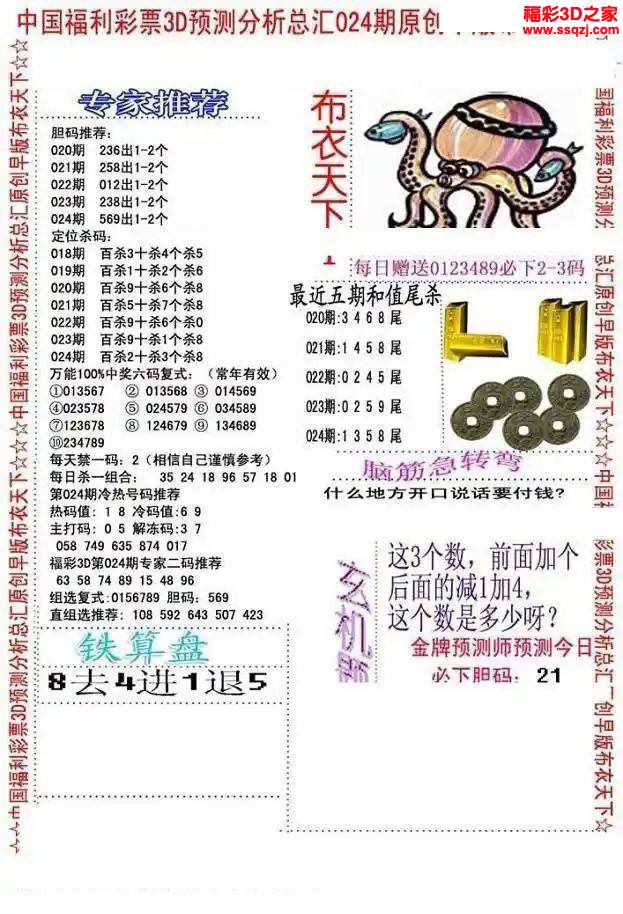 中国福利彩票3D预测分析总汇024期原创
福彩3D之家
www.ssqzj.com
专家推荐
胆码推荐:
020期 236出1-2个
021期 258出1-2个
022期 012出1-2个
023期 238出1-2个
024期 569出1-2个
定位杀码:
018期 百杀3十杀4个杀5
019期 百杀1十杀2个杀6
020期 百杀9十杀6个杀8
021期 百杀5十杀7个杀8
022期 百杀9十杀6个杀0
023期 百杀9十杀1个杀8
024期 百杀2十杀3个杀8
万能100%中奖六码复式:(常年有效)
①013567 ② 013568 ③ 014569
④023578 ⑤ 024579 ⑥ 034589
⑦123678 ⑧ 124679 ⑨ 134689
⑩234789
每天禁一码:2(相信自己谨慎参考)
每日杀一组合: 35 24 18 96 57 18 01
第024期冷热号码推荐
热码值: 1 8 冷码值:6 9
主打码: 0 5 解冻码:3 7
058 749 635 874 017
福彩3D第024期专家二码推荐
63 58 74 89 15 48 96
组选复式:0156789 胆码: 569
直组选推荐: 108 592 643 507 423
铁算盘
8去4进1退5
布衣天下
每日赠送0123489必下2-3码
最近五期和值尾杀
020期:3 4 6 8 尾
021期:1 4 5 8 尾
022期:0 2 4 5 尾
023期:0 2 5 9 尾
024期:1 3 5 8 尾
脑筋急转弯
什么地方开口说话要付钱?
玄机
这3个数,前面加个
后面的减1加4,
这个数是多少呀?
金牌预测师预测今日
必下胆码: 21
国福利彩票3D预测分析总汇原创早版布衣天下☆☆☆中国福利彩票3D预测分析总汇原创早版布衣天下☆☆
国福利彩票3D预测分
总汇原创早版布衣天下☆☆☆中国
彩票3D预测分析总汇
创早版布衣天下☆